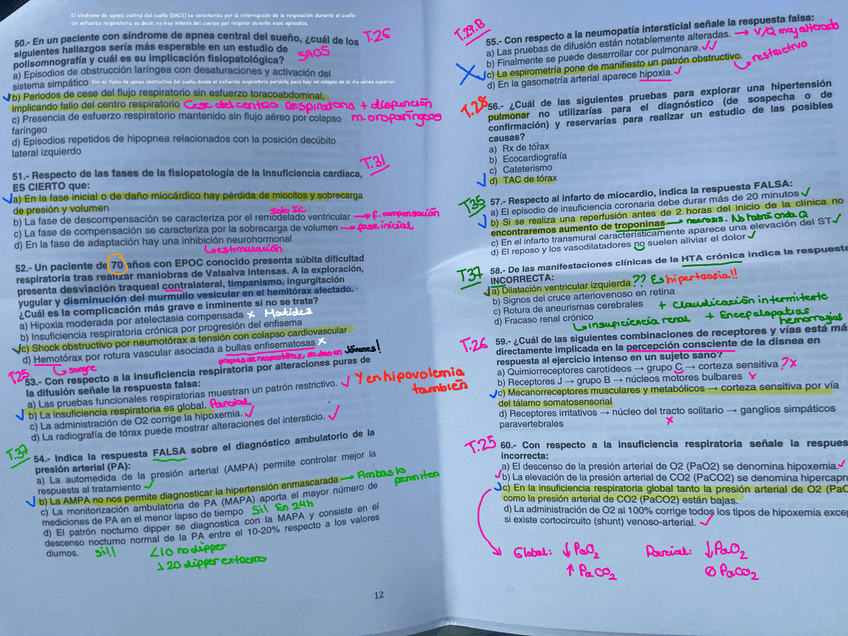 El síndrome de apnea central del sueño (SACS) se caracteriza por la interrupción de la respiración durante el sueño
sin esfuerzo respiratorio, es decir, no hay intento del cuerpo por respirar durante esos episodios.
50.- En un paciente con síndrome de apnea central del sueño, ¿cuál de los
siguientes hallazgos sería más esperable en un estudio de
polisomnografía y cuál es su implicación fisiopatológica?
T.26
SAOS
a) Episodios de obstrucción laríngea con desaturaciones y activación del
sistema simpático
b) Periodos de cese del flujo respiratorio sin esfuerzo toracoabdominal,
implicando fallo del centro respiratorio Cese del centro Respiratorio + disfunción
c) Presencia de esfuerzo respiratorio mantenido sin flujo aéreo por colapso m. orofaríngeos
faríngeo
d) Episodios repetidos de hipopnea relacionados con la posición decúbito
lateral izquierdo
T.31
51.- Respecto de las fases de la fisiopatología de la Insuficiencia cardiaca,
ES CIERTO que:
a) En la fase inicial o de daño miocárdico hay pérdida de miocitos y sobrecarga
de presión y volumen
b) La fase de descompensación se caracteriza por el remodelado ventricular → f. compensación
c) La fase de compensación se caracteriza por la sobrecarga de volumen → fase inicial
d) En la fase de adaptación hay una inhibición neurohormonal
estimulación
52.- Un paciente de 70 años con EPOC conocido presenta súbita dificultad
respiratoria tras realizar maniobras de Valsalva intensas. A la exploración,
presenta desviación traqueal contralateral, timpanismo, ingurgitación
yugular y disminución del murmullo vesicular en el hemitórax afectado.
¿Cuál es la complicación más grave e inminente si no se trata?
a) Hipoxia moderada por atelectasia compensada x Matidez
b) Insuficiencia respiratoria crónica por progresión del enfisema
c) Shock obstructivo por neumotórax a tensión con colapso cardiovascular
d) Hemotórax por rotura vascular asociada a bullas enfisematosas x
sangre
Jóvenes!
T.25
53.- Con respecto a la insuficiencia respiratoria por alteraciones puras de
la difusión señale la respuesta falsa:
a) Las pruebas funcionales respiratorias muestran un patrón restrictivo. ✓
b) La insuficiencia respiratoria es global. Parcial
c) La administración de O2 corrige la hipoxemia. ✓
d) La radiografía de tórax puede mostrar alteraciones del intersticio. ✓
Y en hipovolemia
también
T.37
54.- Indica la respuesta FALSA sobre el diagnóstico ambulatorio de la
presión arterial (PA):
a) La automedida de la presión arterial (AMPA) permite controlar mejor la
respuesta al tratamiento ✓
b) La AMPA no nos permite diagnosticar la hipertensión enmascarada → Ambas lo
permiten
c) La monitorización ambulatoria de PA (MAPA) aporta el mayor número de
mediciones de PA en el menor lapso de tiempo Sí! En 24h
d) El patrón nocturno dipper se diagnostica con la MAPA y consiste en el
descenso nocturno normal de la PA entre el 10-20% respecto a los valores
diurnos. Sí!!
<10 no dipper
> 20 dipper extremo
12
T.29.B
55.- Con respecto a la neumopatía intersticial señale la respuesta falsa:
a) Las pruebas de difusión están notablemente alteradas. → V/Q muy alterado
b) Finalmente se puede desarrollar cor pulmonare. ✓✓
c) La espirometría pone de manifiesto un patrón obstructivo.
restrictivo
d) En la gasometría arterial aparece hipoxia. ✓
T.28
56.- ¿Cuál de las siguientes pruebas para explorar una hipertensión
pulmonar no utilizarías para el diagnóstico (de sospecha o de
confirmación) y reservarías para realizar un estudio de las posibles
causas?
a) Rx de tórax
b) Ecocardiografía
c) Cateterismo
d) TAC de tórax
T35
57.- Respecto al infarto de miocardio, indica la respuesta FALSA:
a) El episodio de insuficiencia coronaria debe durar más de 20 minutos ✓
b) Si se realiza una reperfusión antes de 2 horas del inicio de la clínica no
encontraremos aumento de troponinas → necrosis. No habrá onda Q
c) En el infarto transmural característicamente aparece una elevación del ST ✓
d) El reposo y los vasodilatadores no suelen aliviar el dolor ✓
T37
58.- De las manifestaciones clínicas de la HTA crónica indica la respuesta
INCORRECTA:
a) Dilatación ventricular izquierda ?? Es hipertrofia!!
b) Signos del cruce arteriovenoso en retina
c) Rotura de aneurismas cerebrales + Claudicación intermitente
d) Fracaso renal crónico + Encefalopatías
Insuficiencia renal hemorragias
T.26
59.- ¿Cuál de las siguientes combinaciones de receptores y vías está más
directamente implicada en la percepción consciente de la disnea en
respuesta al ejercicio intenso en un sujeto sano?
a) Quimiorreceptores carotídeos → grupo C → corteza sensitiva ?x
b) Receptores J → grupo B → núcleos motores bulbares x
c) Mecanorreceptores musculares y metabólicos → corteza sensitiva por vía
del tálamo somatosensorial
d) Receptores irritativos → núcleo del tracto solitario → ganglios simpáticos
paravertebrales x
T.25
60.- Con respecto a la insuficiencia respiratoria señale la respues
incorrecta:
a) El descenso de la presión arterial de O2 (PaO2) se denomina hipoxemia. ✓
b) La elevación de la presión arterial de CO2 (PaCO2) se denomina hipercapn
c) En la insuficiencia respiratoria global tanto la presión arterial de O2 (PaC
como la presión arterial de CO2 (PaCO2) están bajas.
d) La administración de O2 al 100% corrige todos los tipos de hipoxemia excep
si existe cortocircuito (shunt) venoso-arterial. ✓
Global: ↓PaO₂ Parcial: ↓PaO₂
↑PaCO₂ ∅PaCO₂